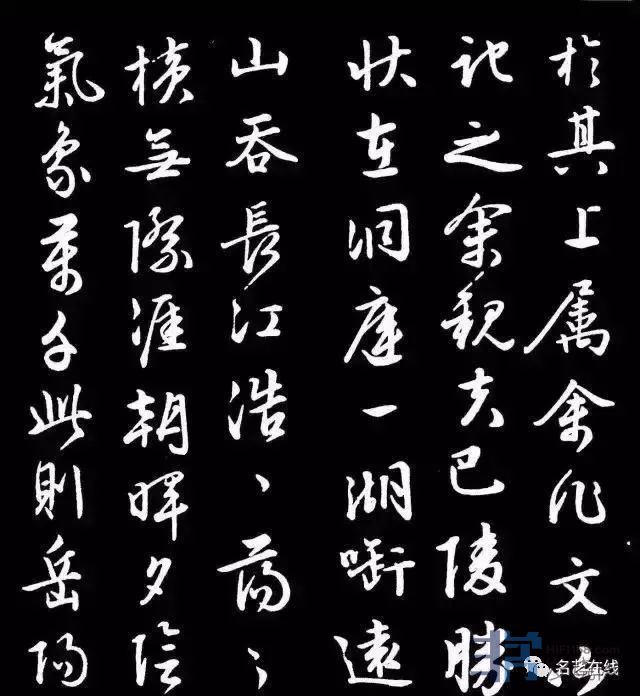 於其上属余作文以
記之余觀夫巴陵勝
狀在洞庭一湖銜遠
山吞長江浩〻蕩〻
橫無際涯朝暉夕陰
氣象萬千此則岳陽